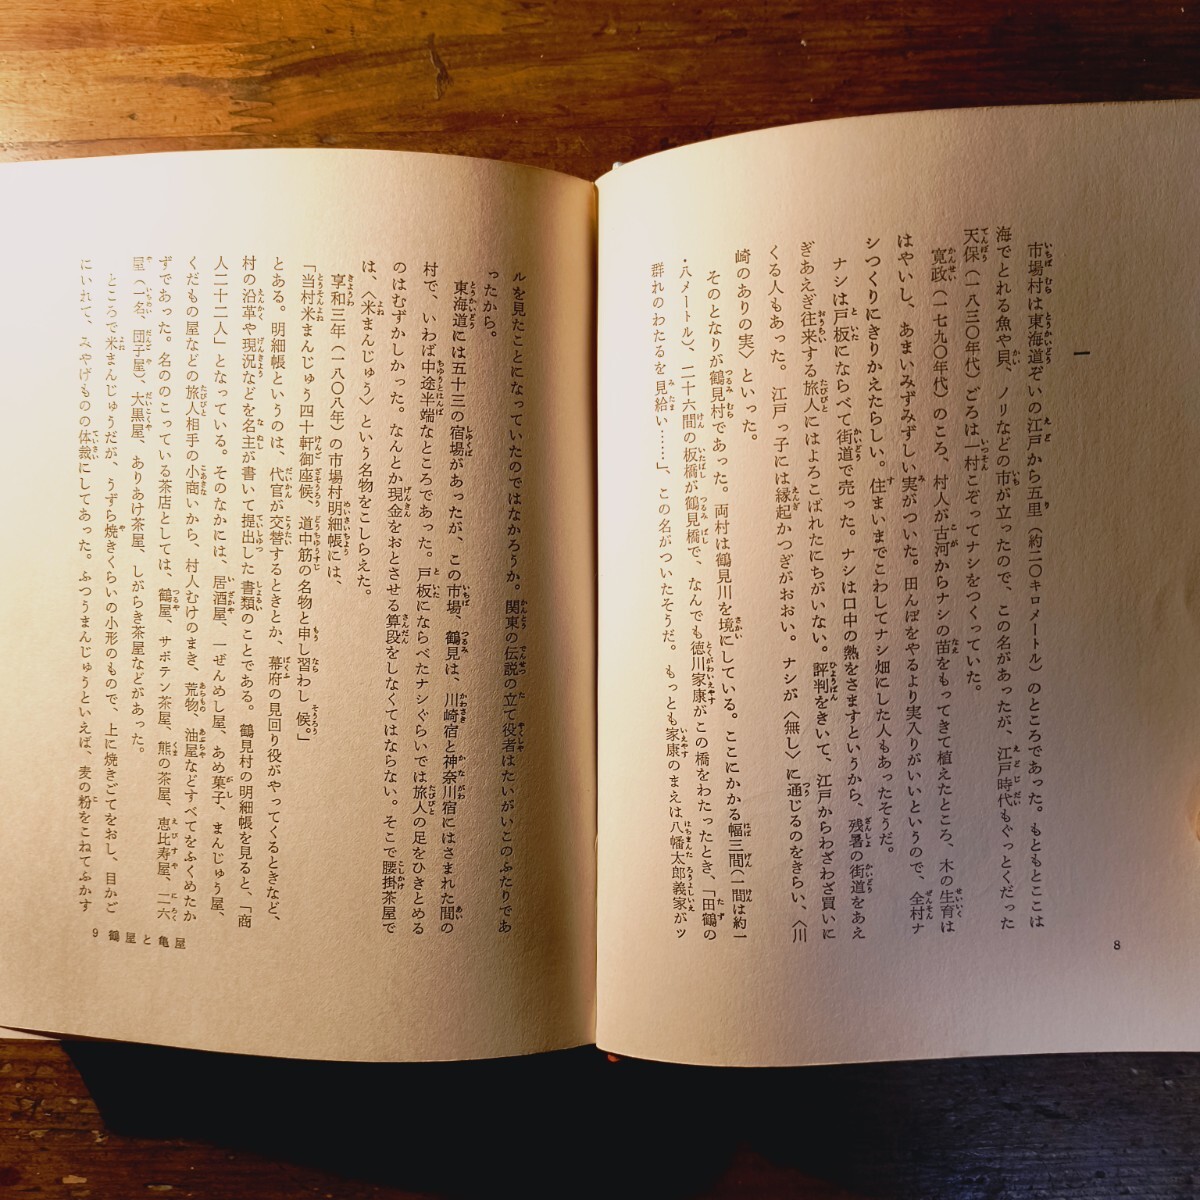 8
一
市場村は東海道ぞいの江戸から五里(約二〇キロメートル)のところであった。もともとここは
海でとれる魚や貝、ノリなどの市が立ったので、この名があったが、江戸時代もぐっとくだった
天保(一八三〇年代)ごろは一村こぞってナシをつくっていた。
寛政(一七九〇年代)のころ、村人が古河からナシの苗をもってきて植えたところ、木の生育は
はやいし、あまいみずみずしい実がついた。田んぼをやるより実入りがいいというので、全村ナ
シつくりにきりかえたらしい。住まいまでこわしてナシ畑にした人もあったそうだ。
ナシは戸板にならべて街道で売った。ナシは口中の熱をさますというから、残暑の街道をあえ
ぎあえぎ往来する旅人にはよろこばれたにちがいない。評判をきいて、江戸からわざわざ買いに
くる人もあった。江戸っ子には縁起かつぎがおおい。ナシが〈無し〉に通じるのをきらい、〈川
崎のありの実〉といった。
そのとなりが鶴見村であった。両村は鶴見川を境にしている。ここにかかる幅三間(一間は約一
・八メートル)、二十六間の板橋が鶴見橋で、なんでも徳川家康がこの橋をわたったとき、「田鶴の
群れのわたるを見給い……」、この名がついたそうだ。もっとも家康のまえは八幡太郎義家がッ
ルを見たことになっていたのではなかろうか。関東の伝説の立て役者はたいがいこのふたりであ
ったから。
東海道には五十三の宿場があったが、この市場、鶴見は、川崎宿と神奈川宿にはさまれた間の
村で、いわば中途半端なところであった。戸板にならべたナシぐらいでは旅人の足をひきとめる
のはむずかしかった。なんとか現金をおとさせる算段をしなくてはならない。そこで腰掛茶屋で
は、〈米まんじゅう〉という名物をこしらえた。
享和三年(一八〇八年)の市場村明細帳には、
「当村米まんじゅう四十軒御座候、道中筋の名物と申し習わし候。」
とある。明細帳というのは、代官が交替するときとか、幕府の見回り役がやってくるときなど、
村の沿革や現況などを名主が書いて提出した書類のことである。鶴見村の明細帳を見ると、「商
人二十二人」となっている。そのなかには、居酒屋、一ぜんめし屋、あめ菓子、まんじゅう屋、
くだもの屋などの旅人相手の小商いから、村人むけのまき、荒物、油屋などすべてをふくめたか
ずであった。名ののこっている茶店としては、鶴屋、サボテン茶屋、熊の茶屋、恵比寿屋、二六
屋(一名、団子屋)、大黒屋、ありあけ茶屋、しがらき茶屋などがあった。
ところで米まんじゅうだが、うずら焼きくらいの小形のもので、上に焼きごてをおし、目かご
にいれて、みやげものの体裁にしてあった。ふつうまんじゅうといえば、麦の粉をこねてふかす
9 鶴屋と亀屋